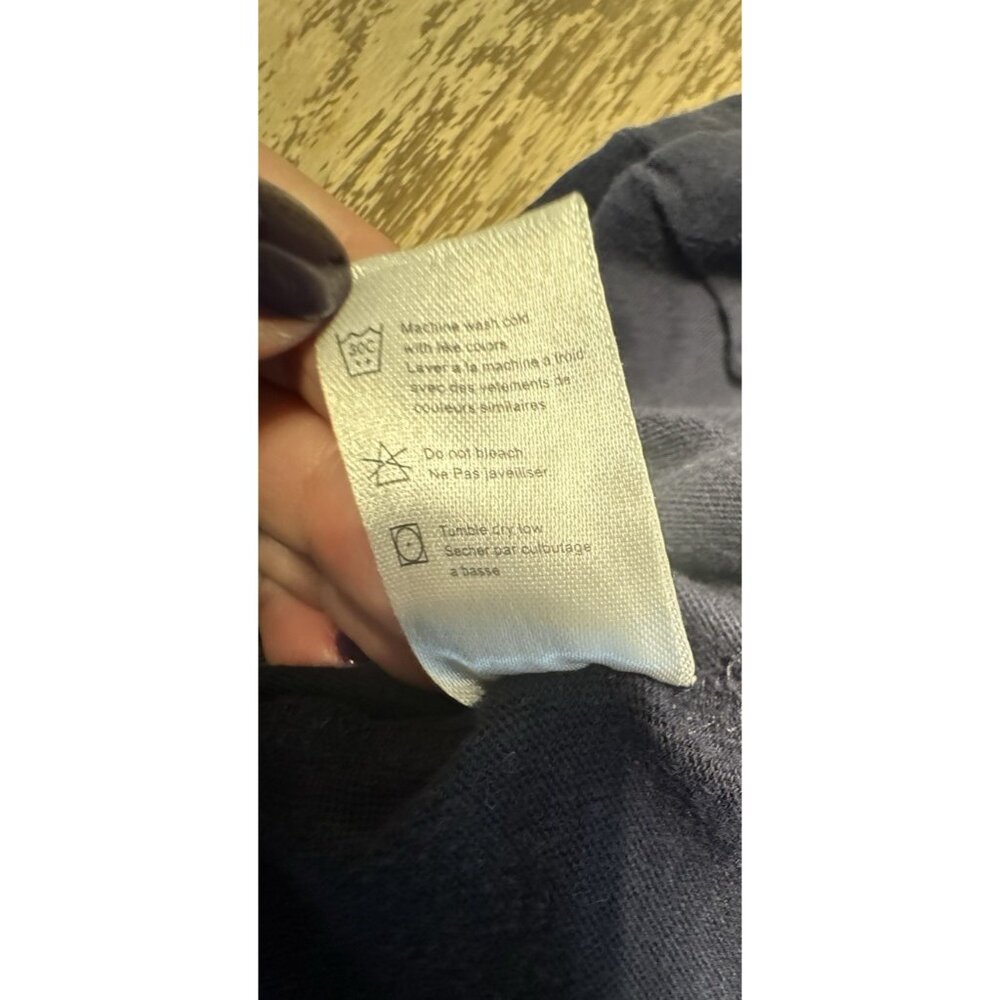 30C
Machine wash cold
with like colors
Laver a la machine a froid
avec des vetements de
couleurs similaires
Do not bleach
Ne Pas javelliser
Tumble dry low
Secher par culbutage
a basse